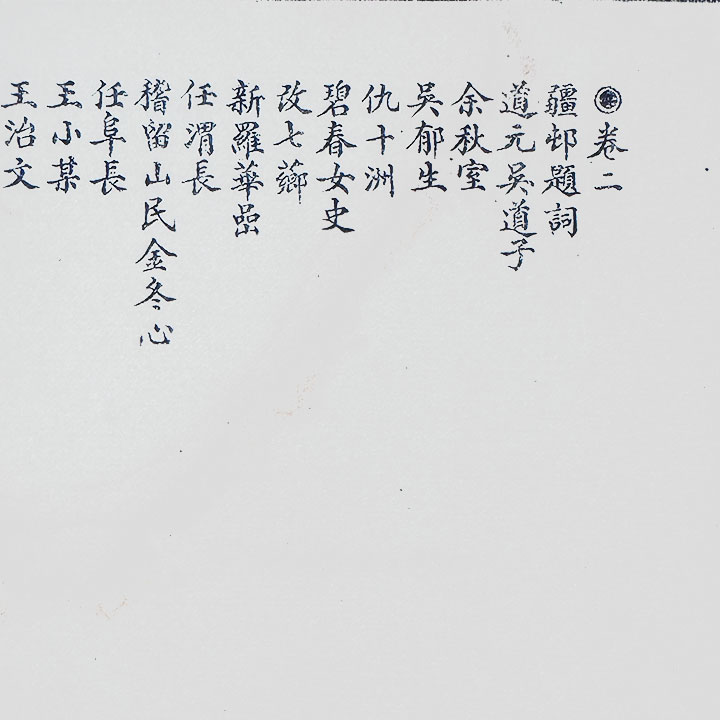 卷二
疆邨題詞
道元吳道子
余秋室
吳郁生
仇十洲
碧春女史
改七薌
新羅華嵒
任渭長
稽留山民金冬心
任阜長
王小某
王治文